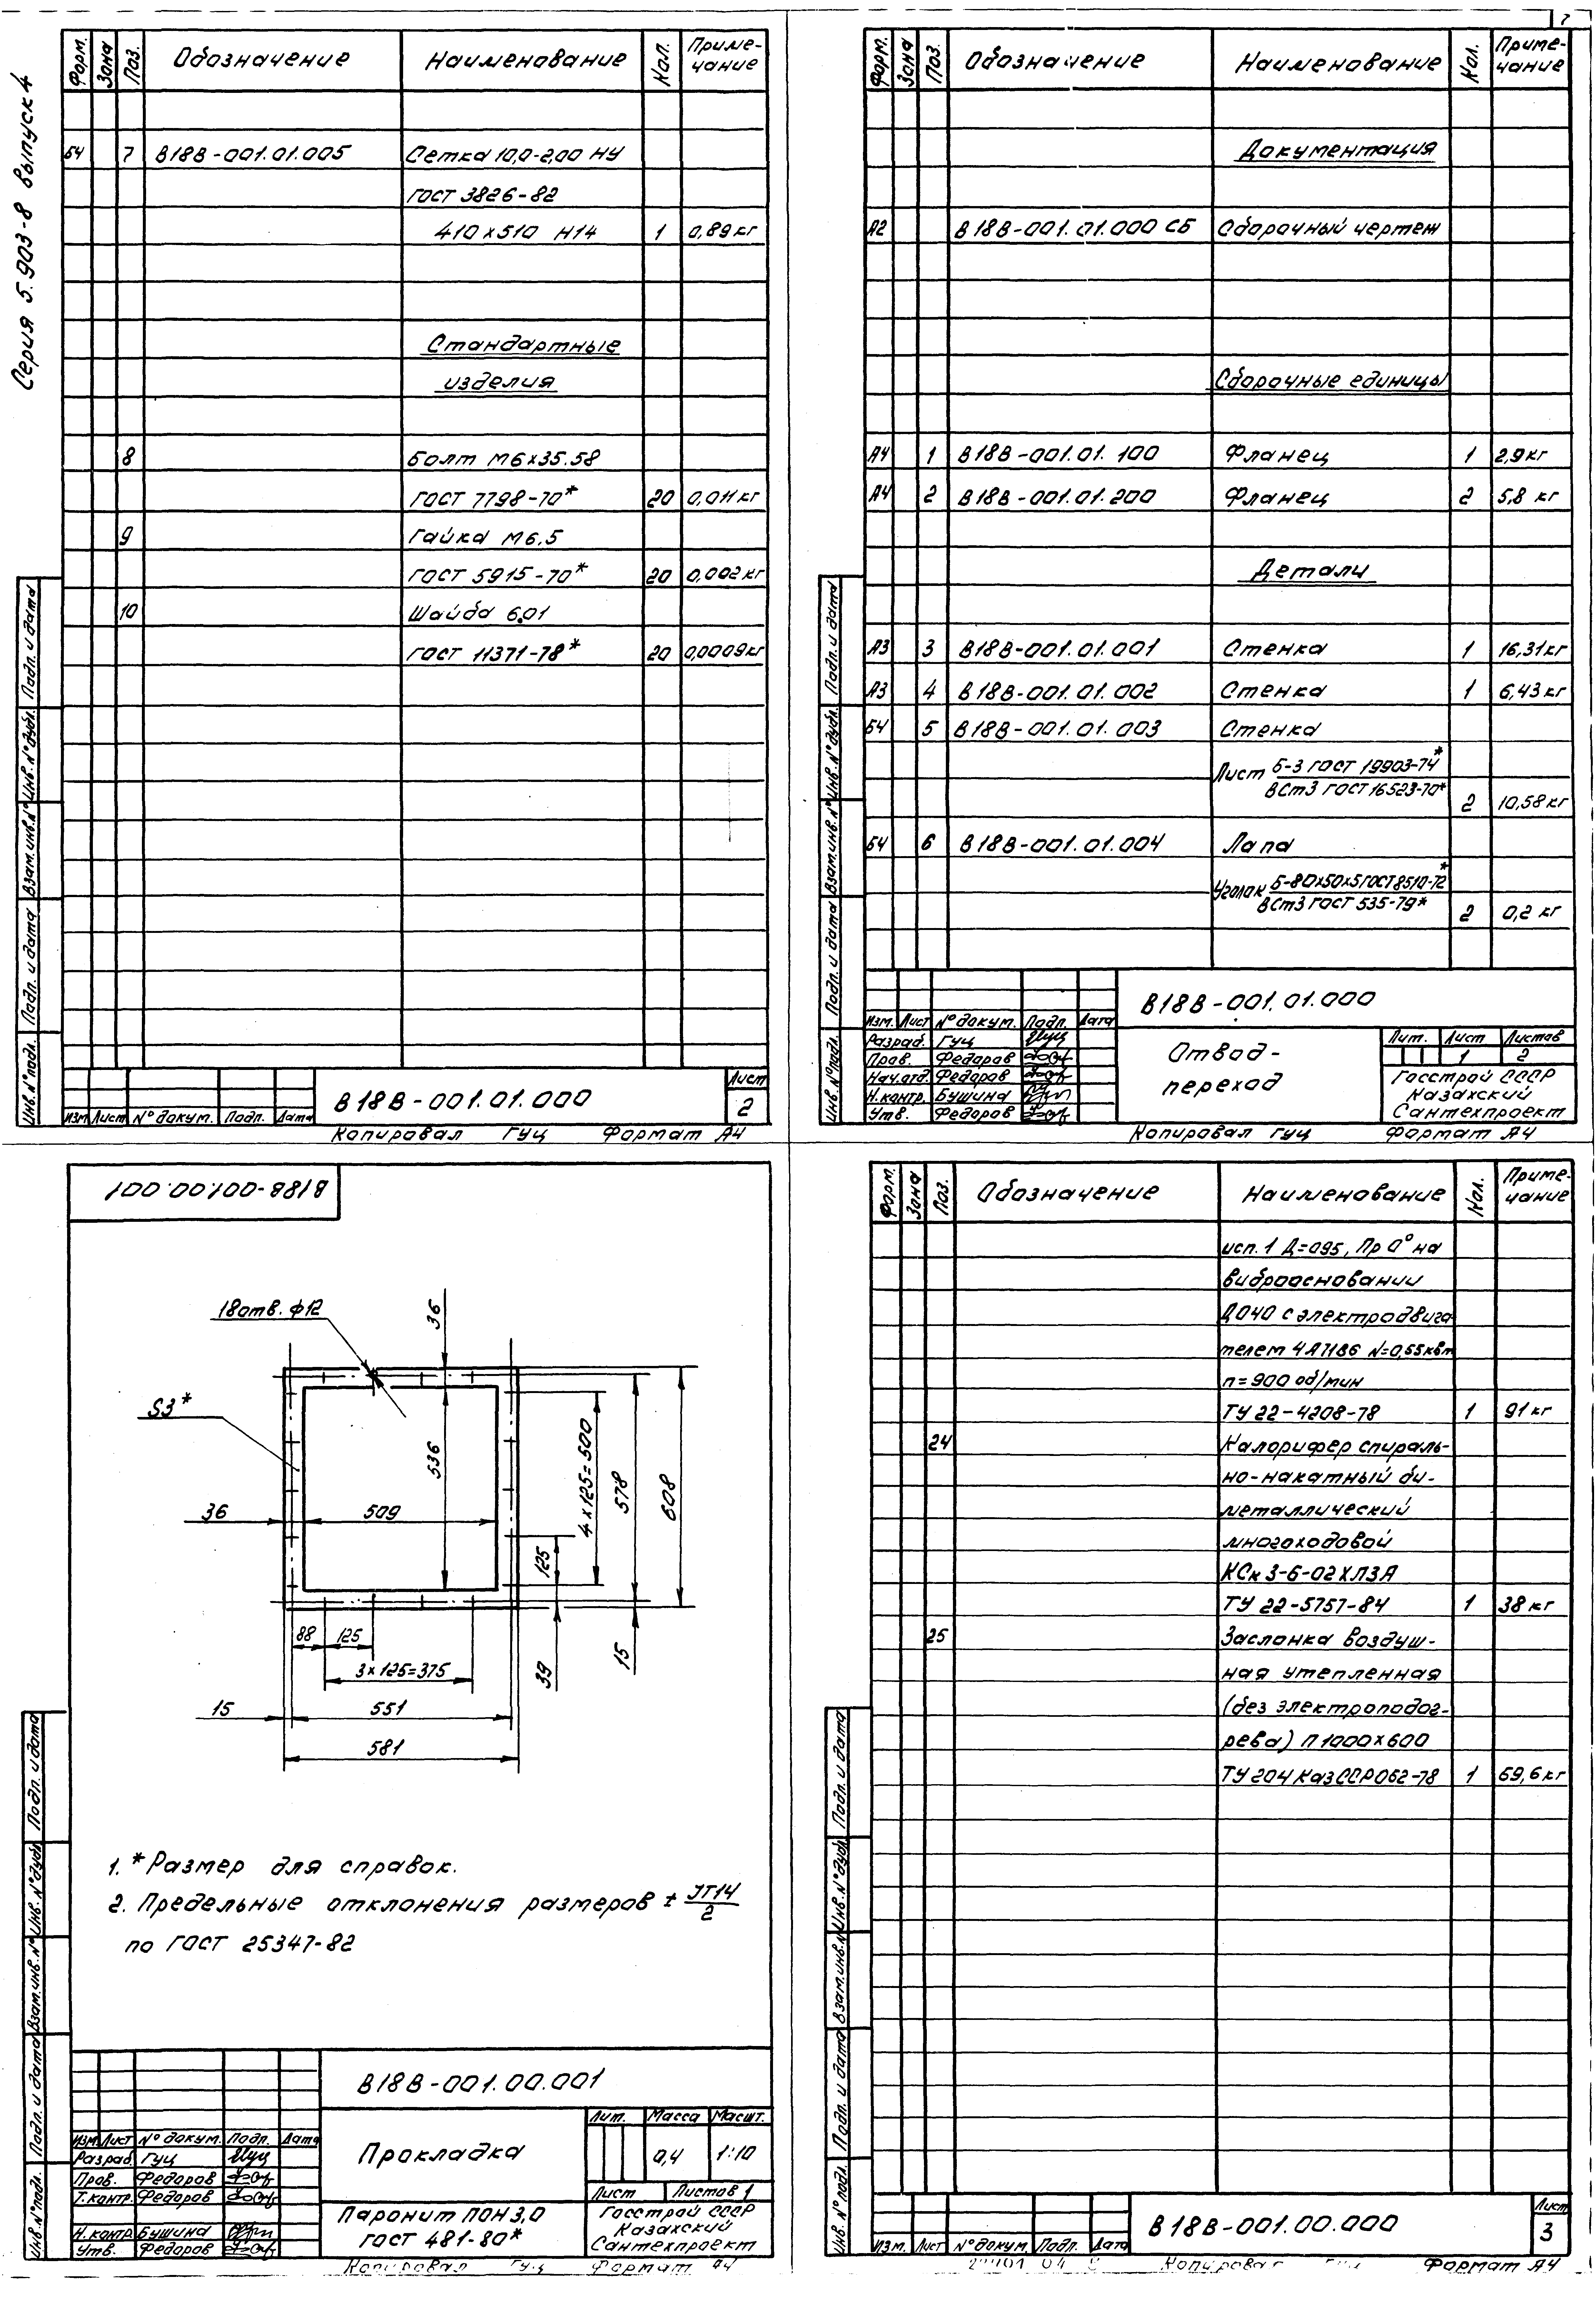 Серия 5.903-8 выпуск 4
Форм. Зона Поз. Обозначение Наименование Кол. Приме-
чание
БЧ 7 В18В-001.01.005 Сетка 10,0-2,00 НУ
ГОСТ 3826-82
410х510 Н14 1 0,89кг
Стандартные
изделия
8 Болт М6х35.58
ГОСТ 7798-70* 20 0,011кг
9 Гайка М6.5
ГОСТ 5915-70* 20 0,002кг
10 Шайба 6.01
ГОСТ 11371-78* 20 0,0009кг
Инв.№подл. Подп. и дата Взам.инв.№ Инв.№дубл. Подп. и дата
Изм Лист №докум. Подп. Дата
В18В-001.01.000
Лист
2
Копировал Гуц Формат А4
7
Форм. Зона Поз. Обозначение Наименование Кол. Приме-
чание
Документация
А2 В18В-001.01.000 СБ Сборочный чертеж
Сборочные единицы
А4 1 В18В-001.01.100 Фланец 1 2,9кг
А4 2 В18В-001.01.200 Фланец 2 5,8 кг
Детали
А3 3 В18В-001.01.001 Стенка 1 16,31кг
А3 4 В18В-001.01.002 Стенка 1 6,43кг
БЧ 5 В18В-001.01.003 Стенка
Лист Б-3 ГОСТ 19903-74*
ВСт3 ГОСТ 16523-70*
2 10,58кг
БЧ 6 В18В-001.01.004 Лапа
Уголок Б-80х50х5 ГОСТ 8510-72*
ВСт3 ГОСТ 535-79*
2 0,2 кг
Инв.№подл. Подп. и дата Взам.инв.№ Инв.№дубл. Подп. и дата
В18В-001.01.000
Изм. Лист №докум. Подп. Дата
Разраб. Гуц
Пров. Федоров
Нач.отд. Федоров
Н.контр. Бушина
Утв. Федоров
Отвод-
переход
Лит. Лист Листов
1 2
Госстрой СССР
Казахский
Сантехпроект
Копировал Гуц Формат А4
В18В-001.00.001
18отв. ф12
S3*
36
36
536
509
4х125=500
578
608
125
88 125
3х125=375
39
15
15
551
581
1. * Размер для справок.
2. Предельные отклонения размеров ± JT14/2
по ГОСТ 25347-82
Инв.№подл. Подп. и дата Взам.инв.№ Инв.№дубл. Подп. и дата
В18В-001.00.001
Изм Лист №докум. Подп. Дата
Разраб. Гуц
Пров. Федоров
Т.контр. Федоров
Н.контр. Бушина
Утв. Федоров
Прокладка
Лит. Масса Масшт.
0,4 1:10
Лист Листов 1
Паронит ПОН 3,0
ГОСТ 481-80*
Госстрой СССР
Казахский
Сантехпроект
Копировал Гуц Формат А4
Форм. Зона Поз. Обозначение Наименование Кол. Приме-
чание
исп.1 Д=095, Пр 0° на
виброосновании
ДО40 с электродвига
телем 4А71В6 N=0,55квт
n=900 об/мин
ТУ 22-4208-78 1 91 кг
24 Калорифер спираль-
но-накатный би-
металлический
многоходовой
КСк 3-6-02ХЛ3А
ТУ 22-5757-84 1 38 кг
25 Заслонка воздуш-
ная утепленная
(без электроподог-
рева) П1000х600
ТУ 204 КазССР 062-78 1 69,6кг
Инв.№подл. Подп. и дата Взам.инв.№ Инв.№дубл. Подп. и дата
Изм. Лист №докум. Подп. Дата
В18В-001.00.000
Лист
3
Копировал Формат А4